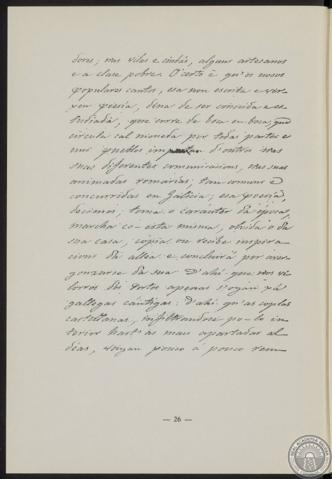 dores, nas vilas e cindás, alguns artesanos
e a clase pobre. O certo é qu'os nosos
populares cantos, esa non escrita e vira
xeu poesia, dina de ser conocida e es
tudiada, que corre de boca en boca, que
circula cal moneda por todas partes e
nus pueblos d'outro nas
suas diferentes comunicacions, nas suas
animadas romarias, tan comuns e
concurridas en Galicia; esa poesia,
decimos, toma o carácter da época,
marcha co-esta misma, olvida o da
sua casa, copia ou recibe inspira
cions da allea e concluirá por aver
gonzarse da sua. D'ahi que nos vi
lorros dos tertos apenas s'oyan xá
gallegas cántigas: D'ahi qu'as coplas
castellanas, infiltrandose po-lo in
terior hast'as mais apartadas al
deas, vayan pouco á pouco rem
— 26 —